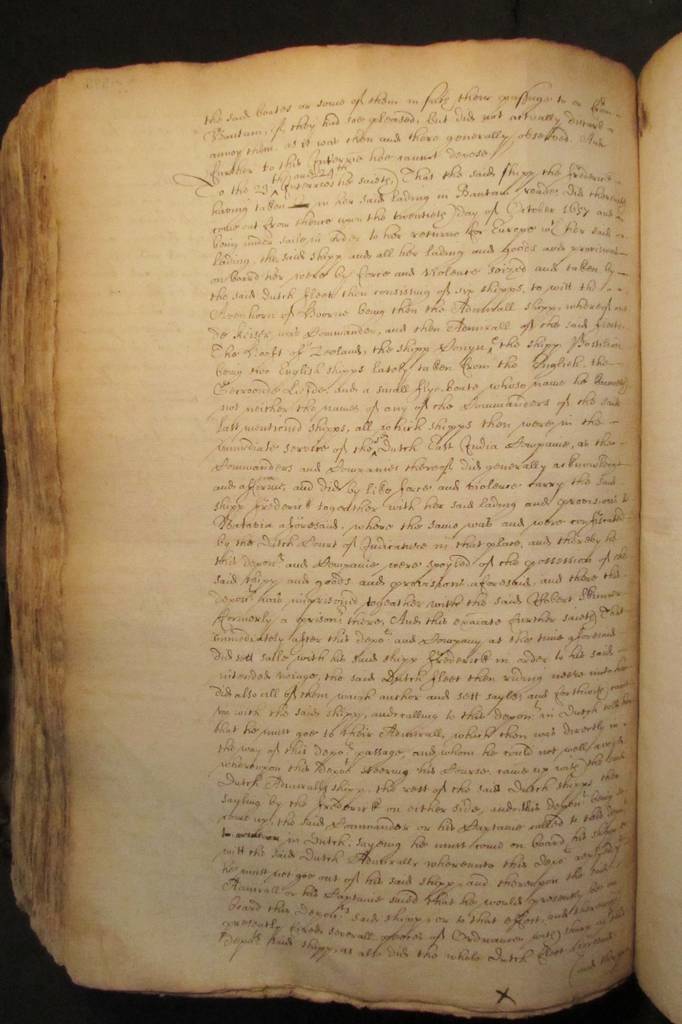 the said boates or some of them in fury their passage to or from
Bantam, if they had soe pleased, but did not actually disturbe or
annoy them, as it was then and there generally observed. And
further to this Interrie hee cannot depose./
To the 23th and 24th Interries hee saieth, That the said shipp the Frederick
having taken in her said lading in Bantam roade, did thereupon
come out from thence upon the twentieth day of October 1657 and
being under saile in order to her returne for Europe with her said
lading, the said shipp and all her lading and goods and provisions
on board her were by force and violence seized and taken by
the said Dutch fleet then consisting of six shipps, to witt the
of Hoorne being then the Admirall shipp, whereof one
de Keiser was Commander, and then Admirall of the said fleet,
The of Zealand, the shipp the shipp
being two English shipps lately taken from the English, the
Liefde, and a small flye-boate, whose name he knoweth
not neither the names of any of the Commanders of the said
last mentioned shipps, all which shipps then were in the
immediate service of the sd Dutch East India Companie, as the
Commanders and Companies thereof did generally acknowledge
and affirme, and did by like force and violence carry the said
shipp Frederick together with her said lading and provisions to
Batavia aforesaid, where the same was and were confiscated
by the Dutch Court of Judicature in that place, and thereby he
this deponent and Companie were spoyled of the possession of the
said shipp and goods and provisions aforesaid, and there this
deponent was imprisoned together with the said Robert Skinner
formerly a prisoner there, And this examinate further saieth That
immediately after this deponent and Company at the time aforesaid
did sett saile with his said shipp Frederick in order to his said
intended voiage, the said Dutch fleet then riding neere unto her
did also all of them weigh anchor and sett sayle, and forthwith came
up with the said shipp, and calling to this deponent in Dutch told him
that he must goe to their Admirall, which then was directly in
the way of this deponents passage, and whom he could not well avoyd
whereupon this deponent steering his Course came up with the said
Dutch Admiralls shipp, the rest of the said Dutch shipps then
sayling by the Frederick on either side, and this deponent being so
come up, the said Commander or his Captaine called to this deponent
in Dutch, saying he must come on board his shipp
with the said Dutch Admirall, whereunto this deponent
he must not goe out of his said shipp, and thereupon the said
Admirall or his Captaine said that he would presently be on
board this deponents said shipp, or to that effect, and thereupon
presently fired severall peeces of Ordnance with shott at this
deponents said shipp, as also did the whole Dutch fleet